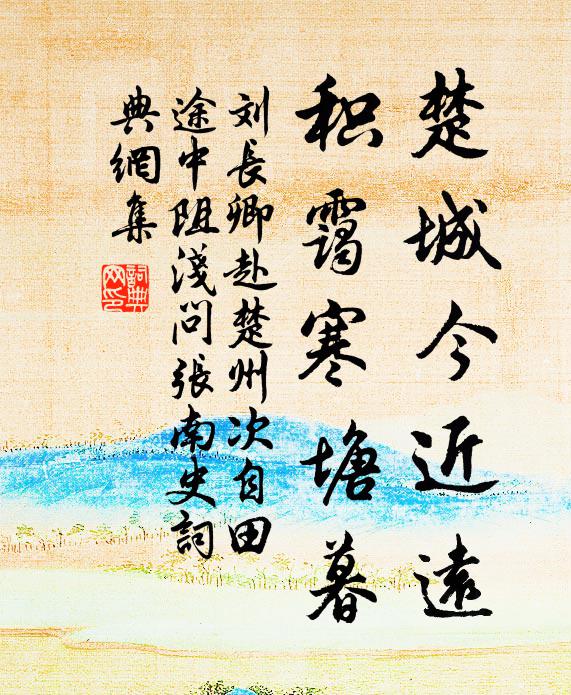 楚城今近遠
积靄寒塘暮
刘長卿赴楚州次自田
途中阻淺问張南史詞
典網集
詞典
网印